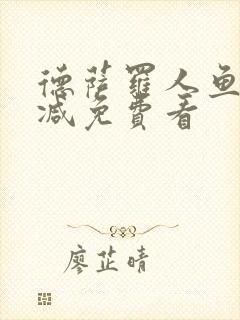 德薩羅人魚
減免費看
廖芷晴